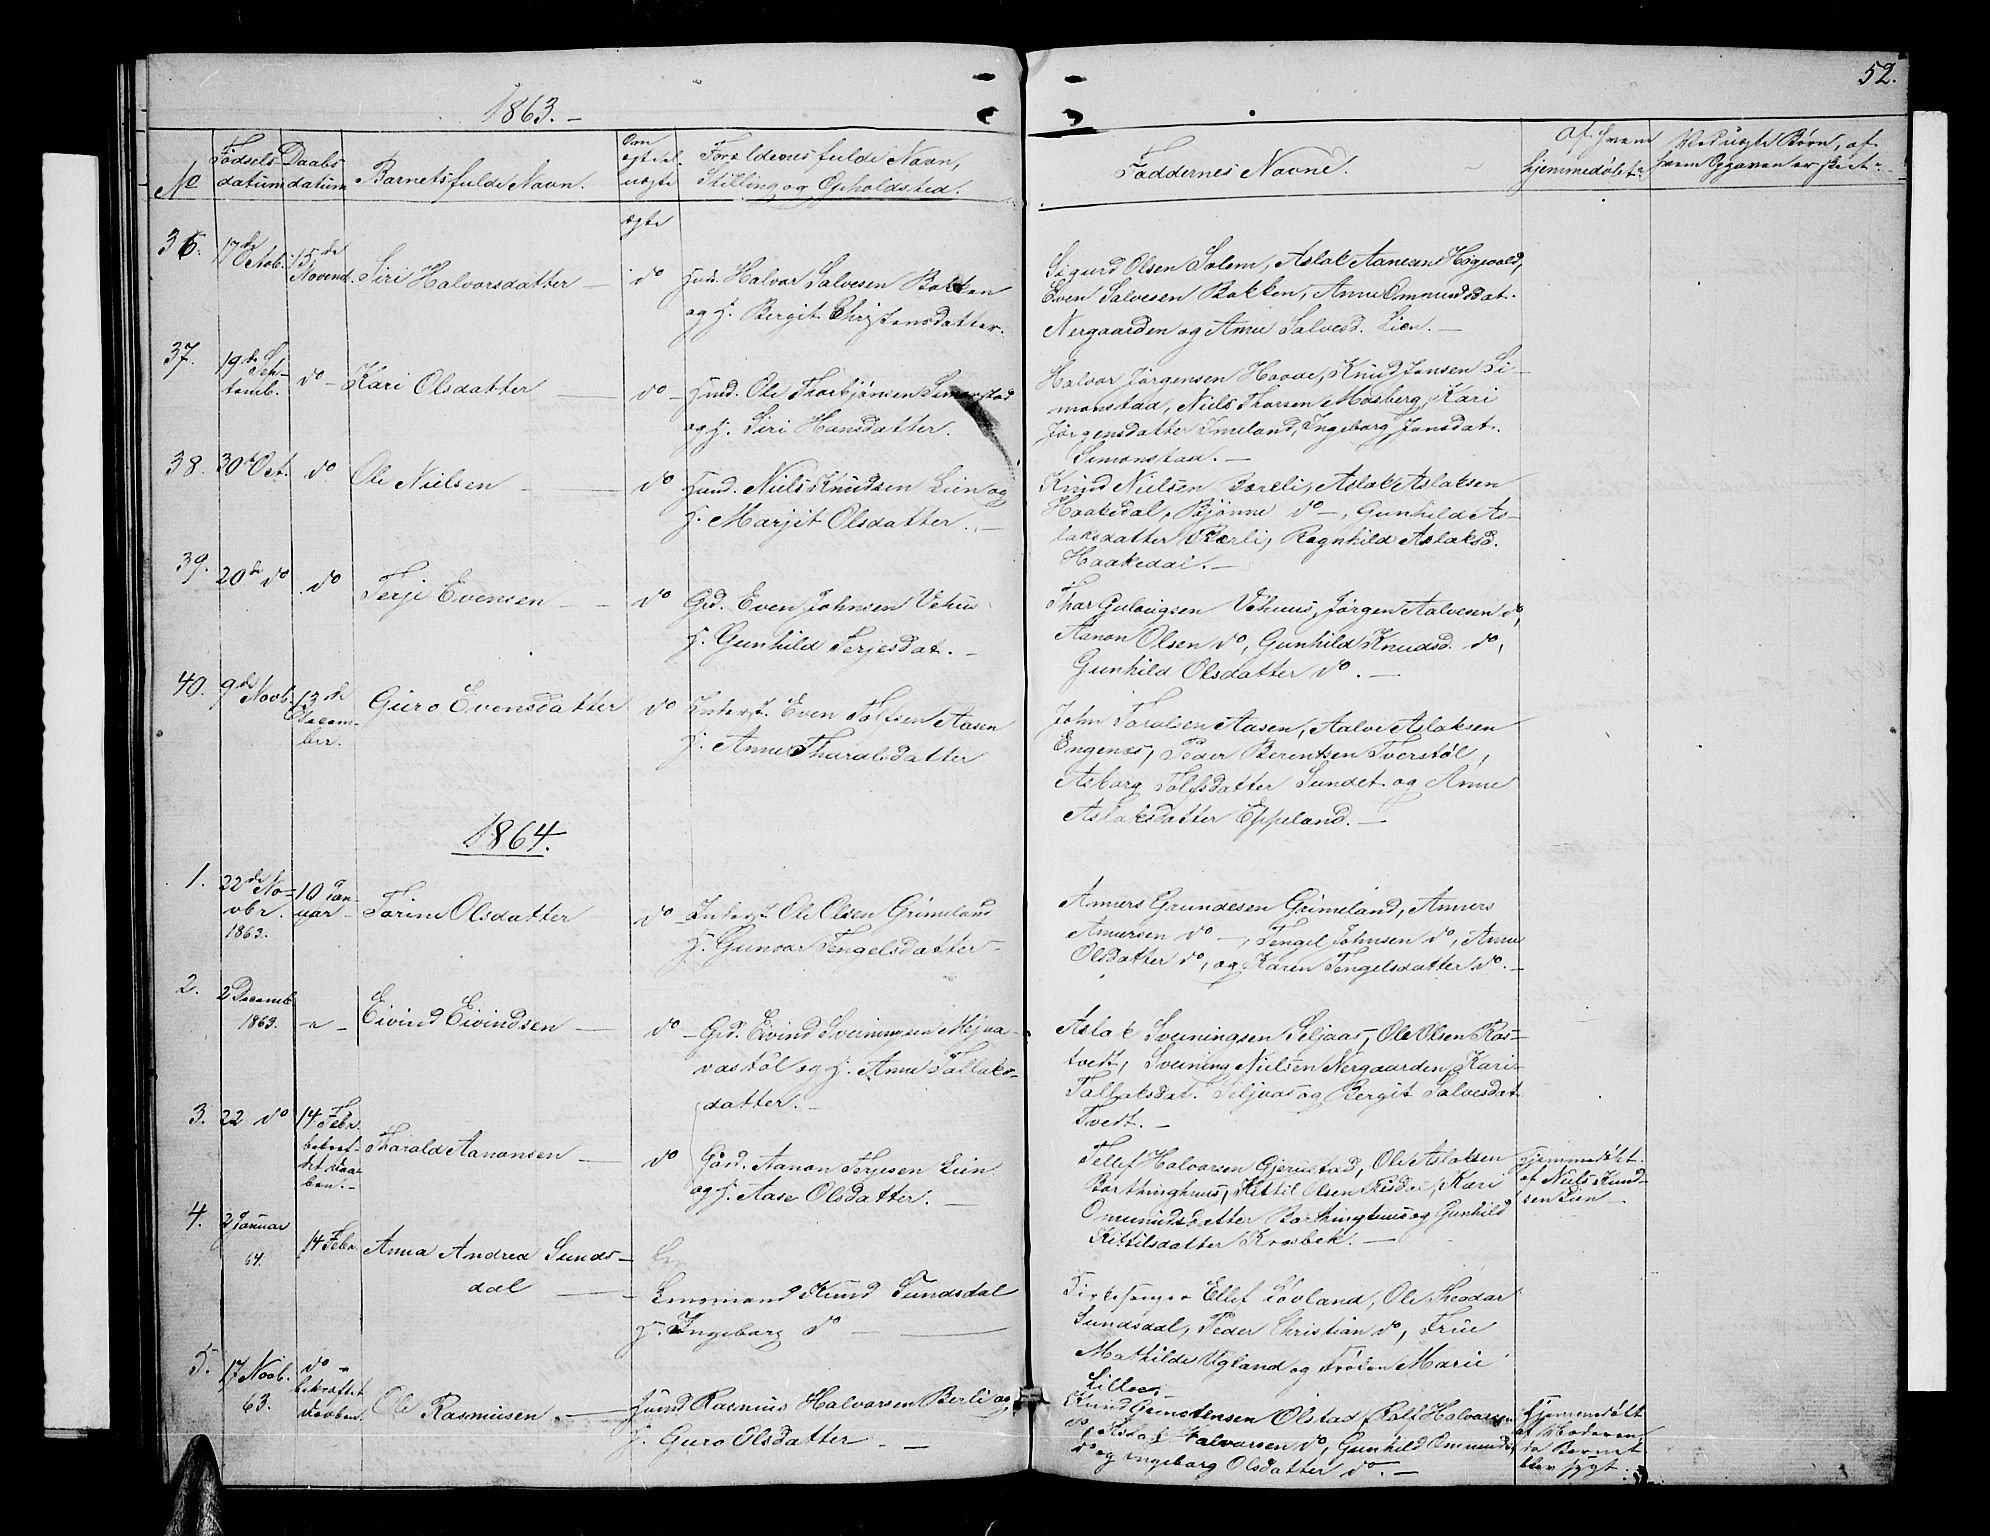 52.
1863.-
No
Fødsels datum
Daabs datum
Barnets fulde Navn.
Om ægte el. uægte
Forældrenes fulde Navn, Stilling og Opholdsted.
Faddernes Navne.
Af hvem hjemmedøbt
Ved uægte Børn, af hvem Opgaven er skeet
ægte
36. 17de Octob. 15de Novemb. Siri Halvorsdatter do Huusm. Halvor Salvesen Bakken
og H. Bergit Christensdatter.
Sigurd Olsen Solem, Aslak Aanesen Høgevold,
Even Salvesen Bakken, Anne Omundsdat.
Nergaarden og Anne Salvesd. Lien.-
37. 19de Septemb. do Kari Olsdatter do Huusm. Ole Thorbjørnsen Simonstad
og H. Siri Hansdatter.
Halvor Jørgensen Hovde, Knud Jensen Si-
monstad, Niels Thorsen Mosberg, Kari
Jørgensdatter Imeland, Ingeborg Jonsdat.
Simonstad.-
38. 30te Oct. do Ole Nielsen do Huusm. Niels Knudsen Lien og
H. Marjit Olsdatter.-
Knud Nielsen Bærli, Aslak Aslaksen
Haakedal, Bjønne do-, Gunhild As-
laksdatter Bærli, Ragnhild Aslaksd.
Haakedal.-
39. 20de do do Terje Evensen do Grd. Even Johnsen Vehuus
H. Gunhild Terjesdat.-
Thor Gulougsen Vehuus, Jørgen Aalvesen do,
Aanon Olsen do, Gunhild Knudsd. do,
Gunhild Olsdatter do.-
40. 9de Novb. 13de December. Guro Evensdatter do Inderst. Even Tolfsen Aasen
H. Anne Tharalsdatter
John Taralsen Aasen, Aalve Aslaksen
Engenes, Peder Berentsen Tverstøl,
Asborg Tolfsdatter Sundet og Anne
Aslaksdatter Eppeland.-
1864.
1. 22de Novbr. 1863. 10 Januar Torine Olsdatter do Inderst. Ole Olsen Grimeland
H. Gunvor Tengelsdatter
Anners Grundesen Grimeland, Anners
Annersen do-, Tengel Johnsen do, Anne
Olsdatter do, og Karen Tengelsdatter do.-
2. 2 Decemb. 1863. Eivind Eivindsen do Grd. Eivind Sveiningsen Mjaa-
vastøl og H. Anne Tallaks-
datter.-
Aslak Sveiningsen Seljaas, Ole Olsen Ros-
tvedt, Sveining Nielsen Nergaarden, Kari
Tallaksdat. Seljaas og Bergit Salvesdat
Tvedt.-
3. 22 do 14 Febr. bekræftet Daaben.- Tharald Aanonsen do Gård. Aanon Terjesen Lien
og H. Aase Olsdatter.-
Tellef Halvorsen Gjerustad, Ole Aslaksen
Borthinghuus, Kittil Olsen Risdal, Kari
Omundsdatter Borthinghuus og Gunhild
Kittilsdatter Krosbek.-
Hjemmedøbt
af Niels Knud-
sen Lien-
4. 2 Januar 64. 14 Febr. Anna Andrea Sunds-
dal
Lensmand Knud Sundsdal
H. Ingeborg do-
Kirkesanger Ellef Løvland, Ole Theodor
Sundsdal, Peder Christian do, Frue
Mathilde Ugland og Frøken Marie
Lilloe.
5. 17 Novb. 63. do bekræftet Daaben. Ole Rasmusen. Huusm. Rasmus Halvorsen Berli og
H. Guro Olsdatter-
Knud Olstad, Rolf Halvorsen
do, Aslak Halvorsen do, Gunhild Omunds.
do og Ingeborg Olsdatter do.-
Hjemmedøbt
af Moderen,
da Barnet
blev sygt.